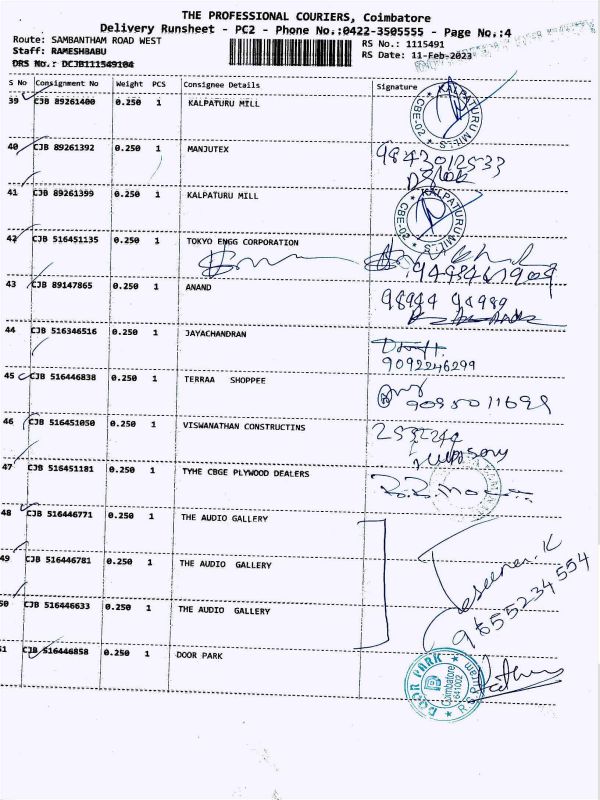 THE PROFESSIONAL COURIERS, Coimbatore
Delivery Runsheet - PC2 - Phone No.:0422-3505555 - Page No.:4
Route: SAMBANTHAM ROAD WEST
RS No.: 1115491
Staff: RAMESHBABU
RS Date: 11-Feb-2023
DRS No.: DCJB111549104
S No Consignment No Weight PCS Consignee Details Signature
39 CJB 89261400 0.250 1 KALPATURU MILL
KALPATURU MILLS CBE-02
40 CJB 89261392 0.250 1 MANJUTEX
9843012533
41 CJB 89261399 0.250 1 KALPATURU MILL
KALPATURU MILLS CBE-02
42 CJB 516451135 0.250 1 TOKYO ENGG CORPORATION
43 CJB 89147865 0.250 1 ANAND
98944 94989
44 CJB 516346516 0.250 1 JAYACHANDRAN
9092246299
45 CJB 516446838 0.250 1 TERRAA SHOPPEE
9095011699
46 CJB 516451050 0.250 1 VISWANATHAN CONSTRUCTINS
47 CJB 516451181 0.250 1 TYHE CBGE PLYWOOD DEALERS
48 CJB 516446771 0.250 1 THE AUDIO GALLERY
49 CJB 516446781 0.250 1 THE AUDIO GALLERY
9655234554
50 CJB 516446633 0.250 1 THE AUDIO GALLERY
51 CJB 516446858 0.250 1 DOOR PARK
DOOR PARK
Coimbatore
641002